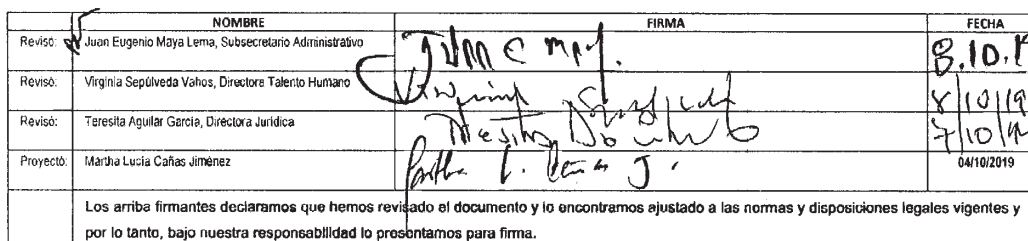 NOMBRE FIRMA FECHA
Revisó: Juan Eugenio Maya Lema, Subsecretario Administrativo
Revisó: Virginia Sepúlveda Vahos, Directora Talento Humano 8/10/19
Revisó: Teresita Aguilar García, Directora Jurídica 7/10/19
Proyectó: Martha Lucía Cañas Jiménez 04/10/2019
Los arriba firmantes declaramos que hemos revisado el documento y lo encontramos ajustado a las normas y disposiciones legales vigentes y
por lo tanto, bajo nuestra responsabilidad lo presentamos para firma.